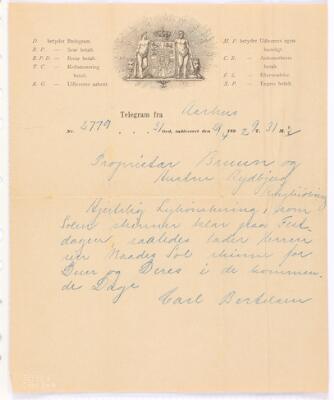 D betyder Iiltelegram.
R. P. — Svar betalt.
T. C. — Kollationering
betalt.
M. P. betyder Udleveres egen-
hændigt.
betalt.
F. S. — Eftersendelse.
X. P. — Expres betalt.
Telegram fra Aarhus
Nr. 2779 . . . 31 Ord, indleveret den 9/4 192 Kl. 9. 31 M.
Proprietær Bruun og
Hustru Rydbjerg
Hjertelig Lykønskning, som
Solen skinner klar paa Fest-
dagen, saaledes lader Herren
sin Naades Sol skinne for
Deres i de kommen-
de Dage
Carl Bertelsen